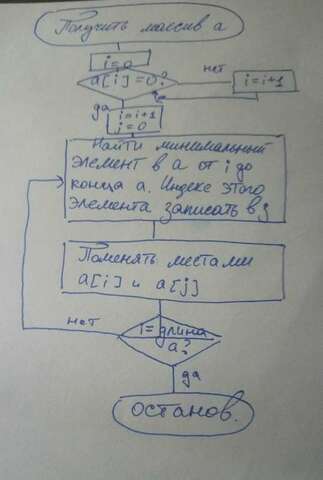 Получить массив a
i=0
a[i]=0?
нет
i=i+1
да
i=i+1
j=0
Найти минимальный
элемент в a от i до
конца a. Индекс этого
элемента записать в j
Поменять местами
a[i] и a[j]
нет
i=длина
a?
да
ОСТАНОВ.